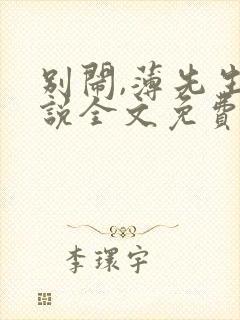 別鬧,薄先生
說全文免費
李環宇